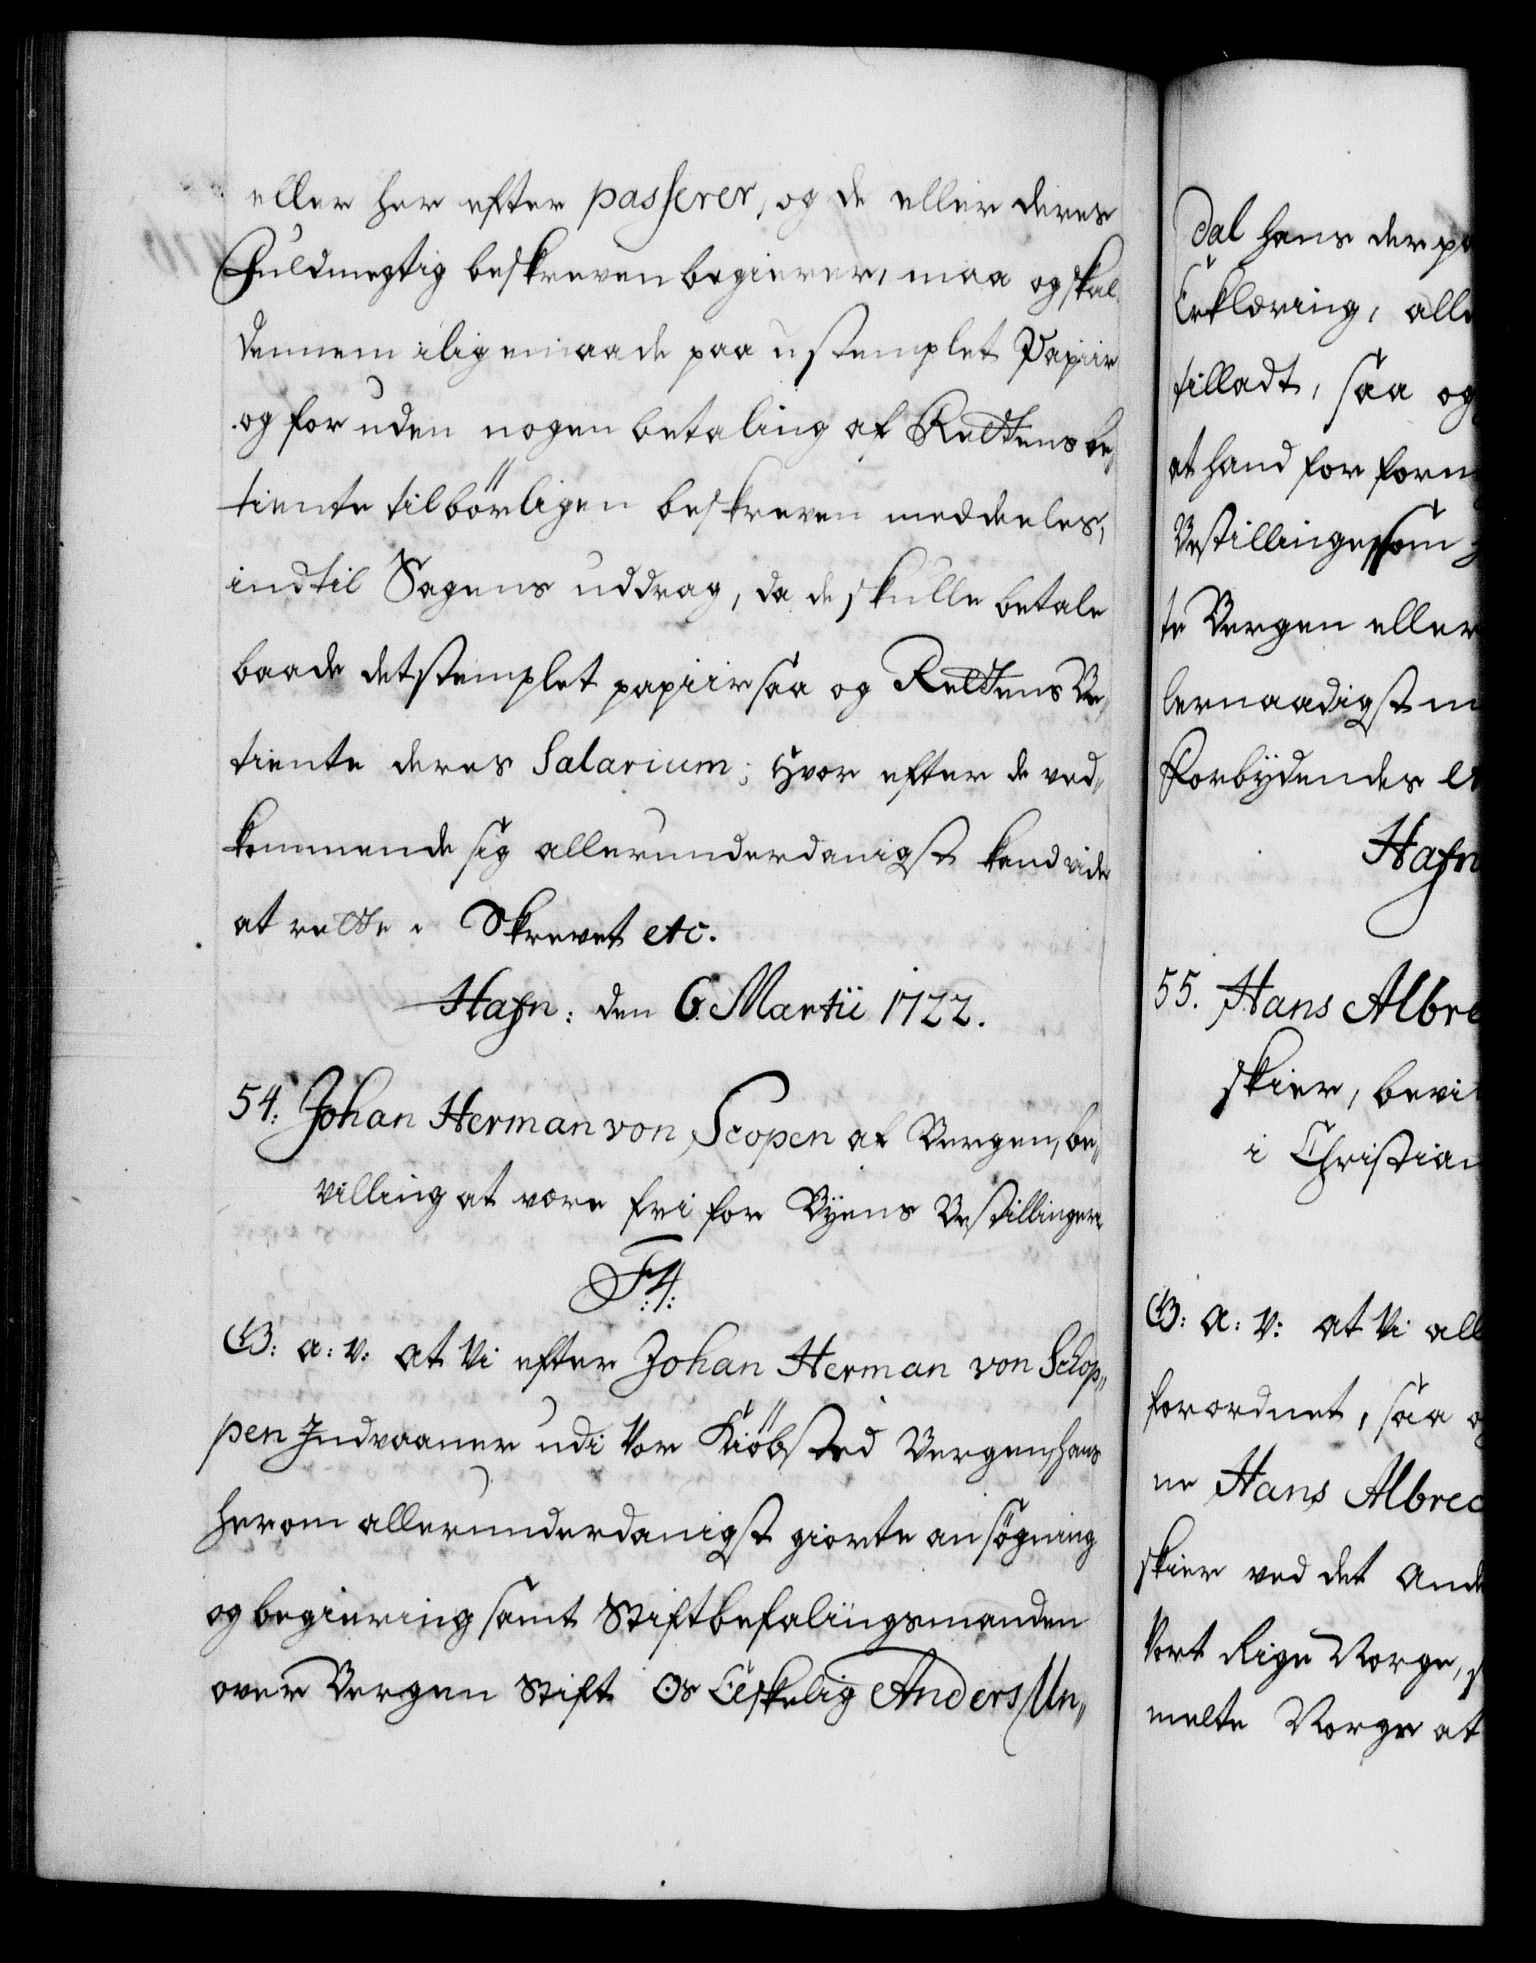 eller her efter passerer, og de eller deres
Fuldmegtig beskreven begierer, maa og skal
dennem iligemaade paa ustemplet Papiir
og for uden nogen betaling af Rettens be,,
tiente tilbörligen beskreven meddeeles,
indtil Sagens uddrag, da de skulle betale
baade det stemplet papiir saa og Rettens Be,,
tiente deres Salarium; Hvor efter de ved,,
kommende sig allerunderdanigst hend vide
at rette. Skrevet etc.
Hafn: den 6. Martii 1722.
54. Johan Herman von Scopen af Bergen, be,,
villing at være fri for Byens Bestillinger.
F4:
G: a: v: at Vi efter Johan Herman von Schop,,
pen Indvaaner udi Vor Kiöbsted Bergen, hans
herom allerunderdanigst giorte ansögning
og begiering samt Stiftbefalingsmanden
over Bergen Stift Os Elskelig Anders Un,,
dal hans der p
Erklæring, alle
tilladt, saa og
at hand for form
Bestillinger, som
te Bergen eller
lernaadigst m
Forbydendes
Hafn
55. Hans Albre
skier, bevi
i Christian
G: a: v: at Vi all
forordnet, saa o
ne Hans Albrec
skier ved det Ande
Vort Rige Norge,
melte Norge at